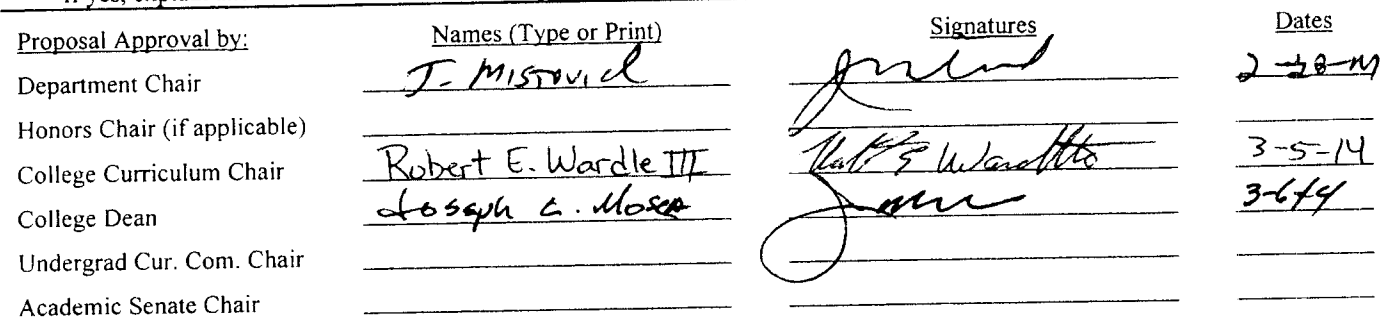 Proposal Approval by: Names (Type or Print) Signatures Dates
Department Chair J. Mistovich 2-28-14
Honors Chair (if applicable)
College Curriculum Chair Robert E. Wardle III 3-5-14
College Dean Joseph L. Mosca 3-6-14
Undergrad Cur. Com. Chair
Academic Senate Chair